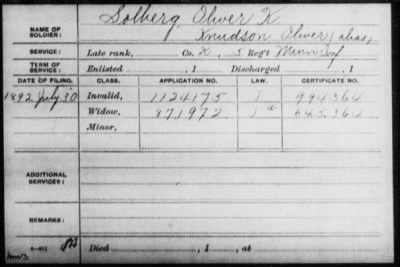 NAME OF SOLDIER: Solberg, Oliver K
Knudson Oliver (alias)
SERVICE: Late rank, Co. K, 5 Reg't Minn Inf
TERM OF SERVICE: Enlisted , 1 Discharged , 1
DATE OF FILING. CLASS. APPLICATION NO. LAW. CERTIFICATE NO.
1892 July 30 Invalid, 1124175 994364
Widow, 871972 645.364
Minor,
ADDITIONAL SERVICES:
REMARKS:
Died , 1 , at